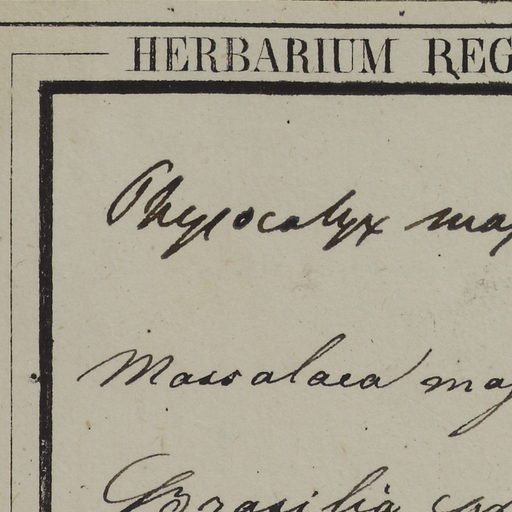 HERBARIUM REG
Physocalyx maj
maj
Brasilia